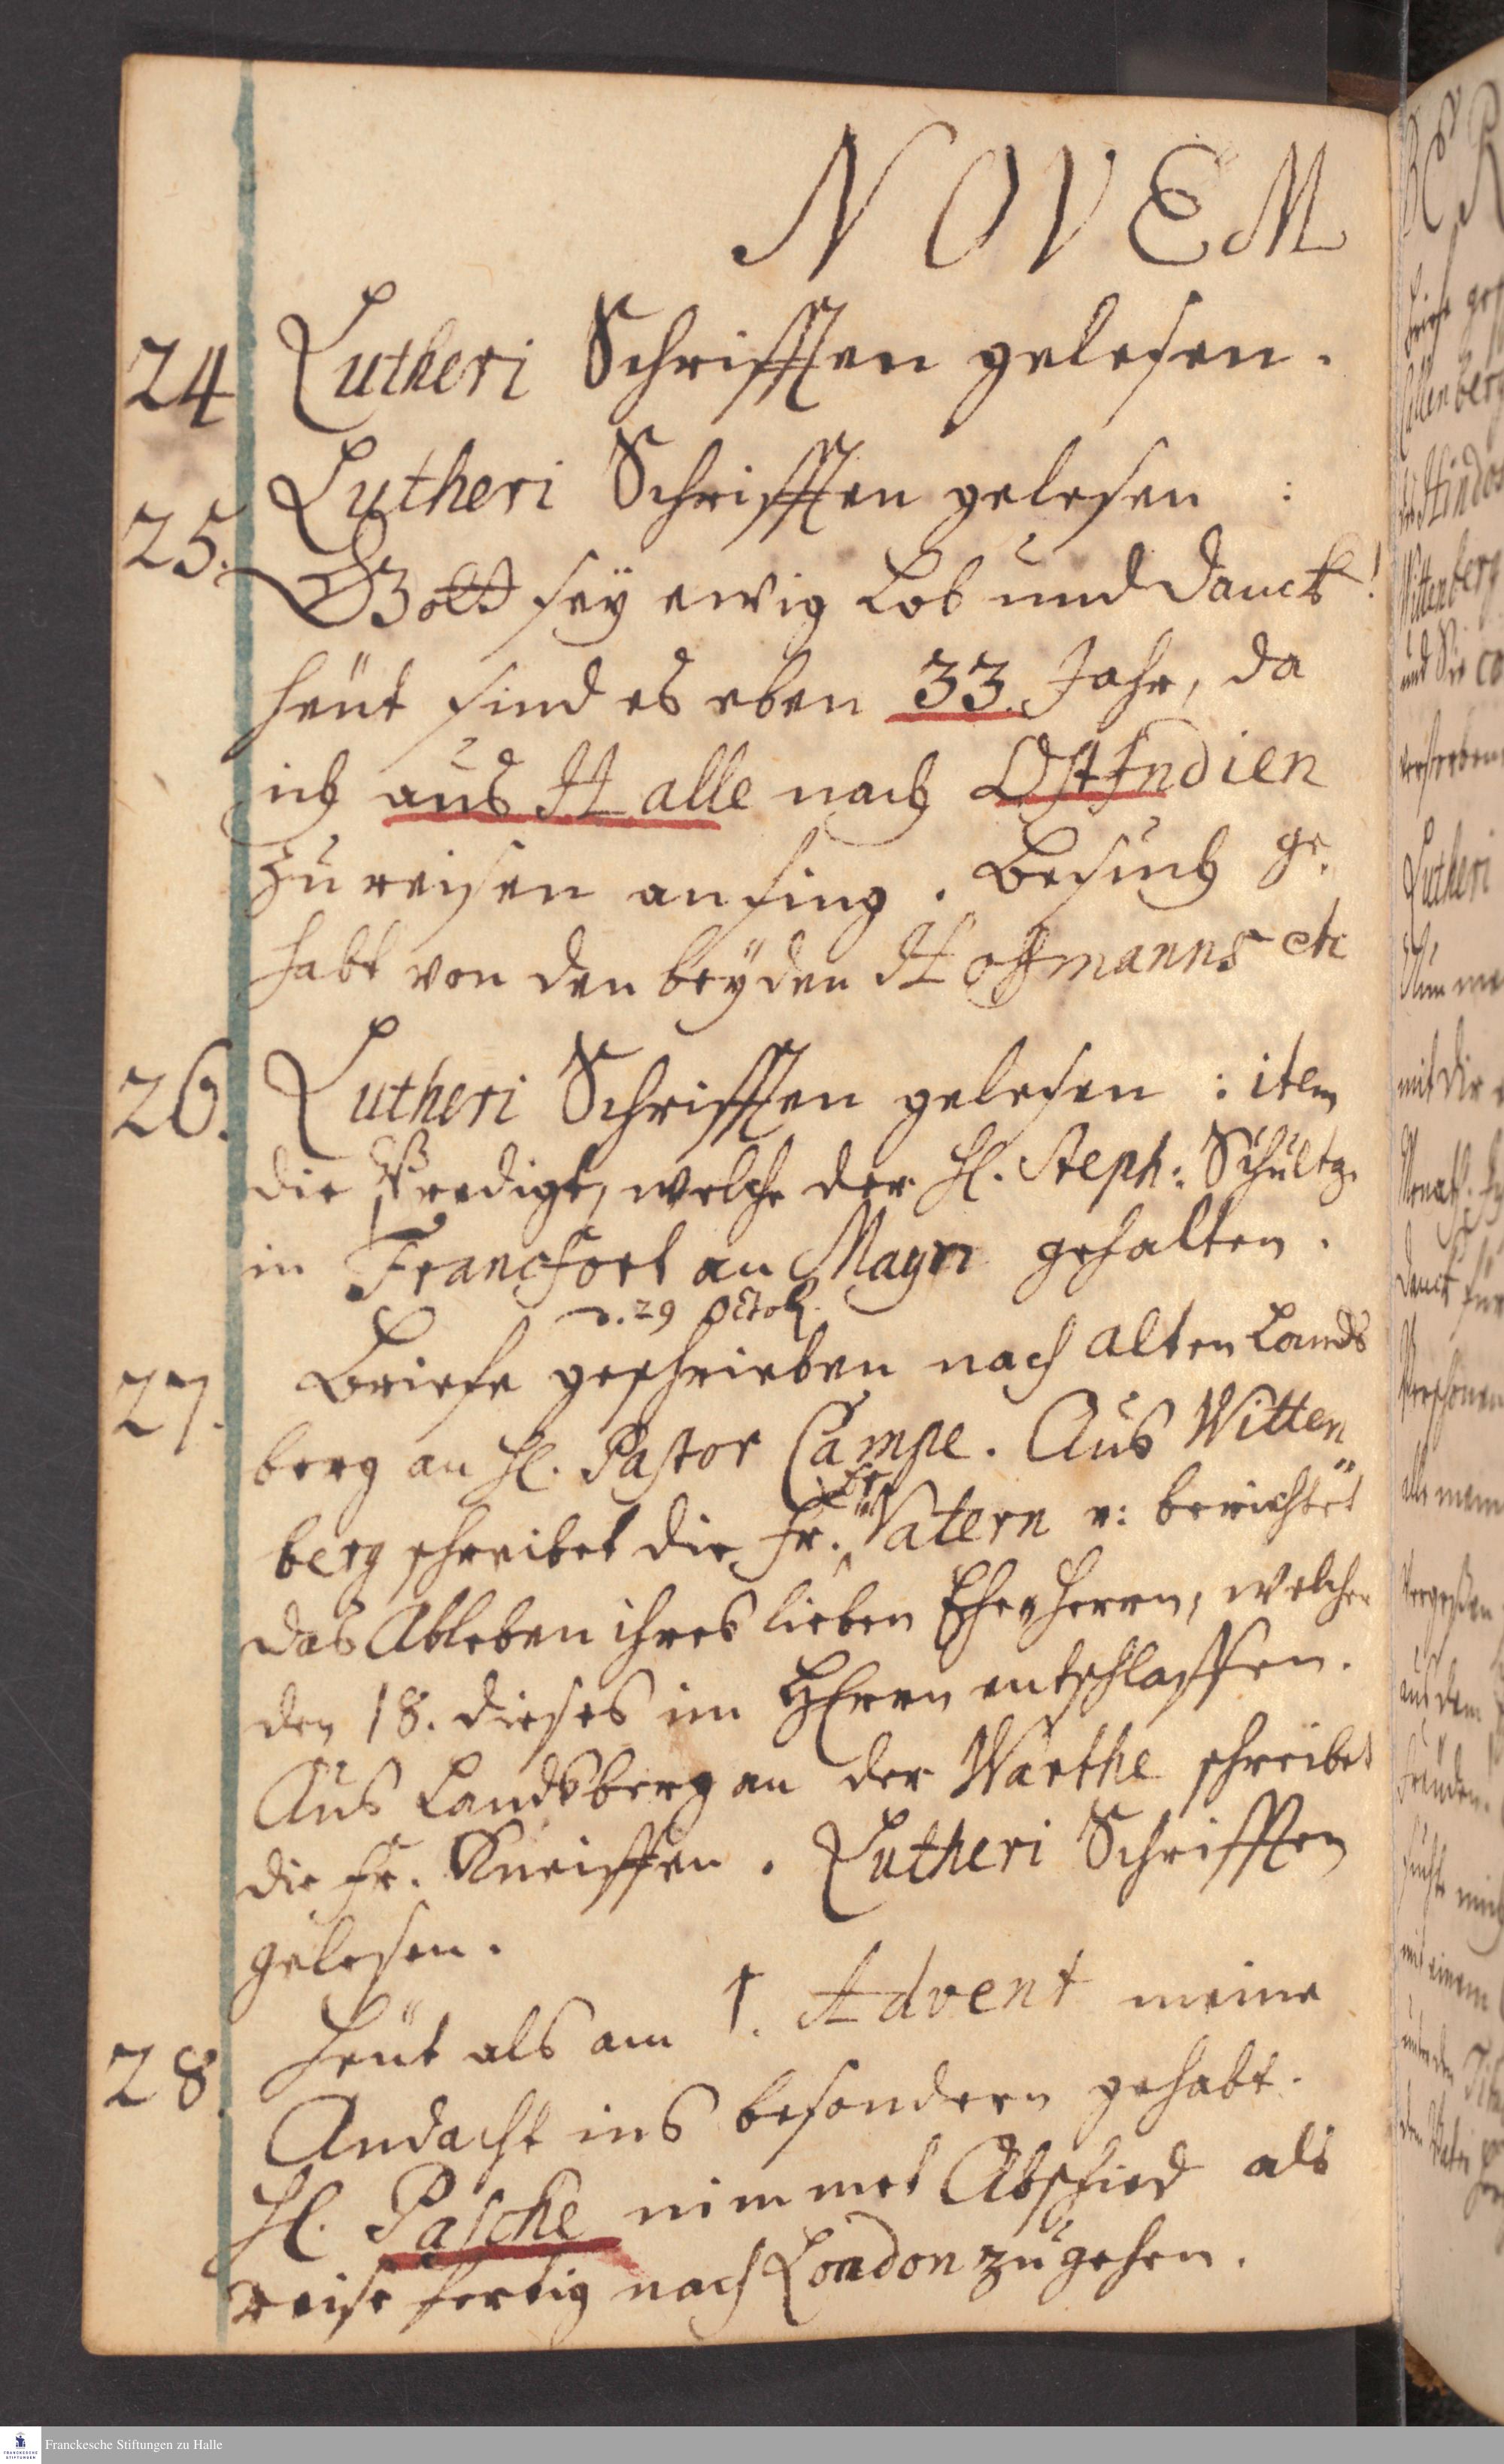 NOVEM
24 Lutheri Schrifften gelesen.
25. Lutheri Schrifften gelesen :
Gott seÿ ewig Lob und Danck!
heüt sind es eben 33. Jahr, da
ich aus Halle nach OstIndien
zu reisen anfing. Besuch ge.
habt von den beÿden Hoffmanns etc
26. Lutheri Schrifften gelesen : item
die Predigt, welche der H. Steph: Schultz.
in Francfort an Mayn gehalten.
d. 29 Octob.
27. Briefe geschrieben nach alten Lands
berg an H. Pastor Campe. Aus Witten
berg schreibet die Fr. Vatern u: berichtet
das Ableben ihres lieben EheHerrn, welcher
den 18. dieses im HErrn entschlaffen.
Aus Landsberg an der Warthe schreibet
die Fr. Kneiffen. Lutheri Schrifften
gelesen.
28. Heüt als am 1. Advent meine
Andacht ins besondern gehabt.
H. Pasche nimmet Abschied als
reise fertig nach London zu gehen.
Franckesche Stiftungen zu Halle